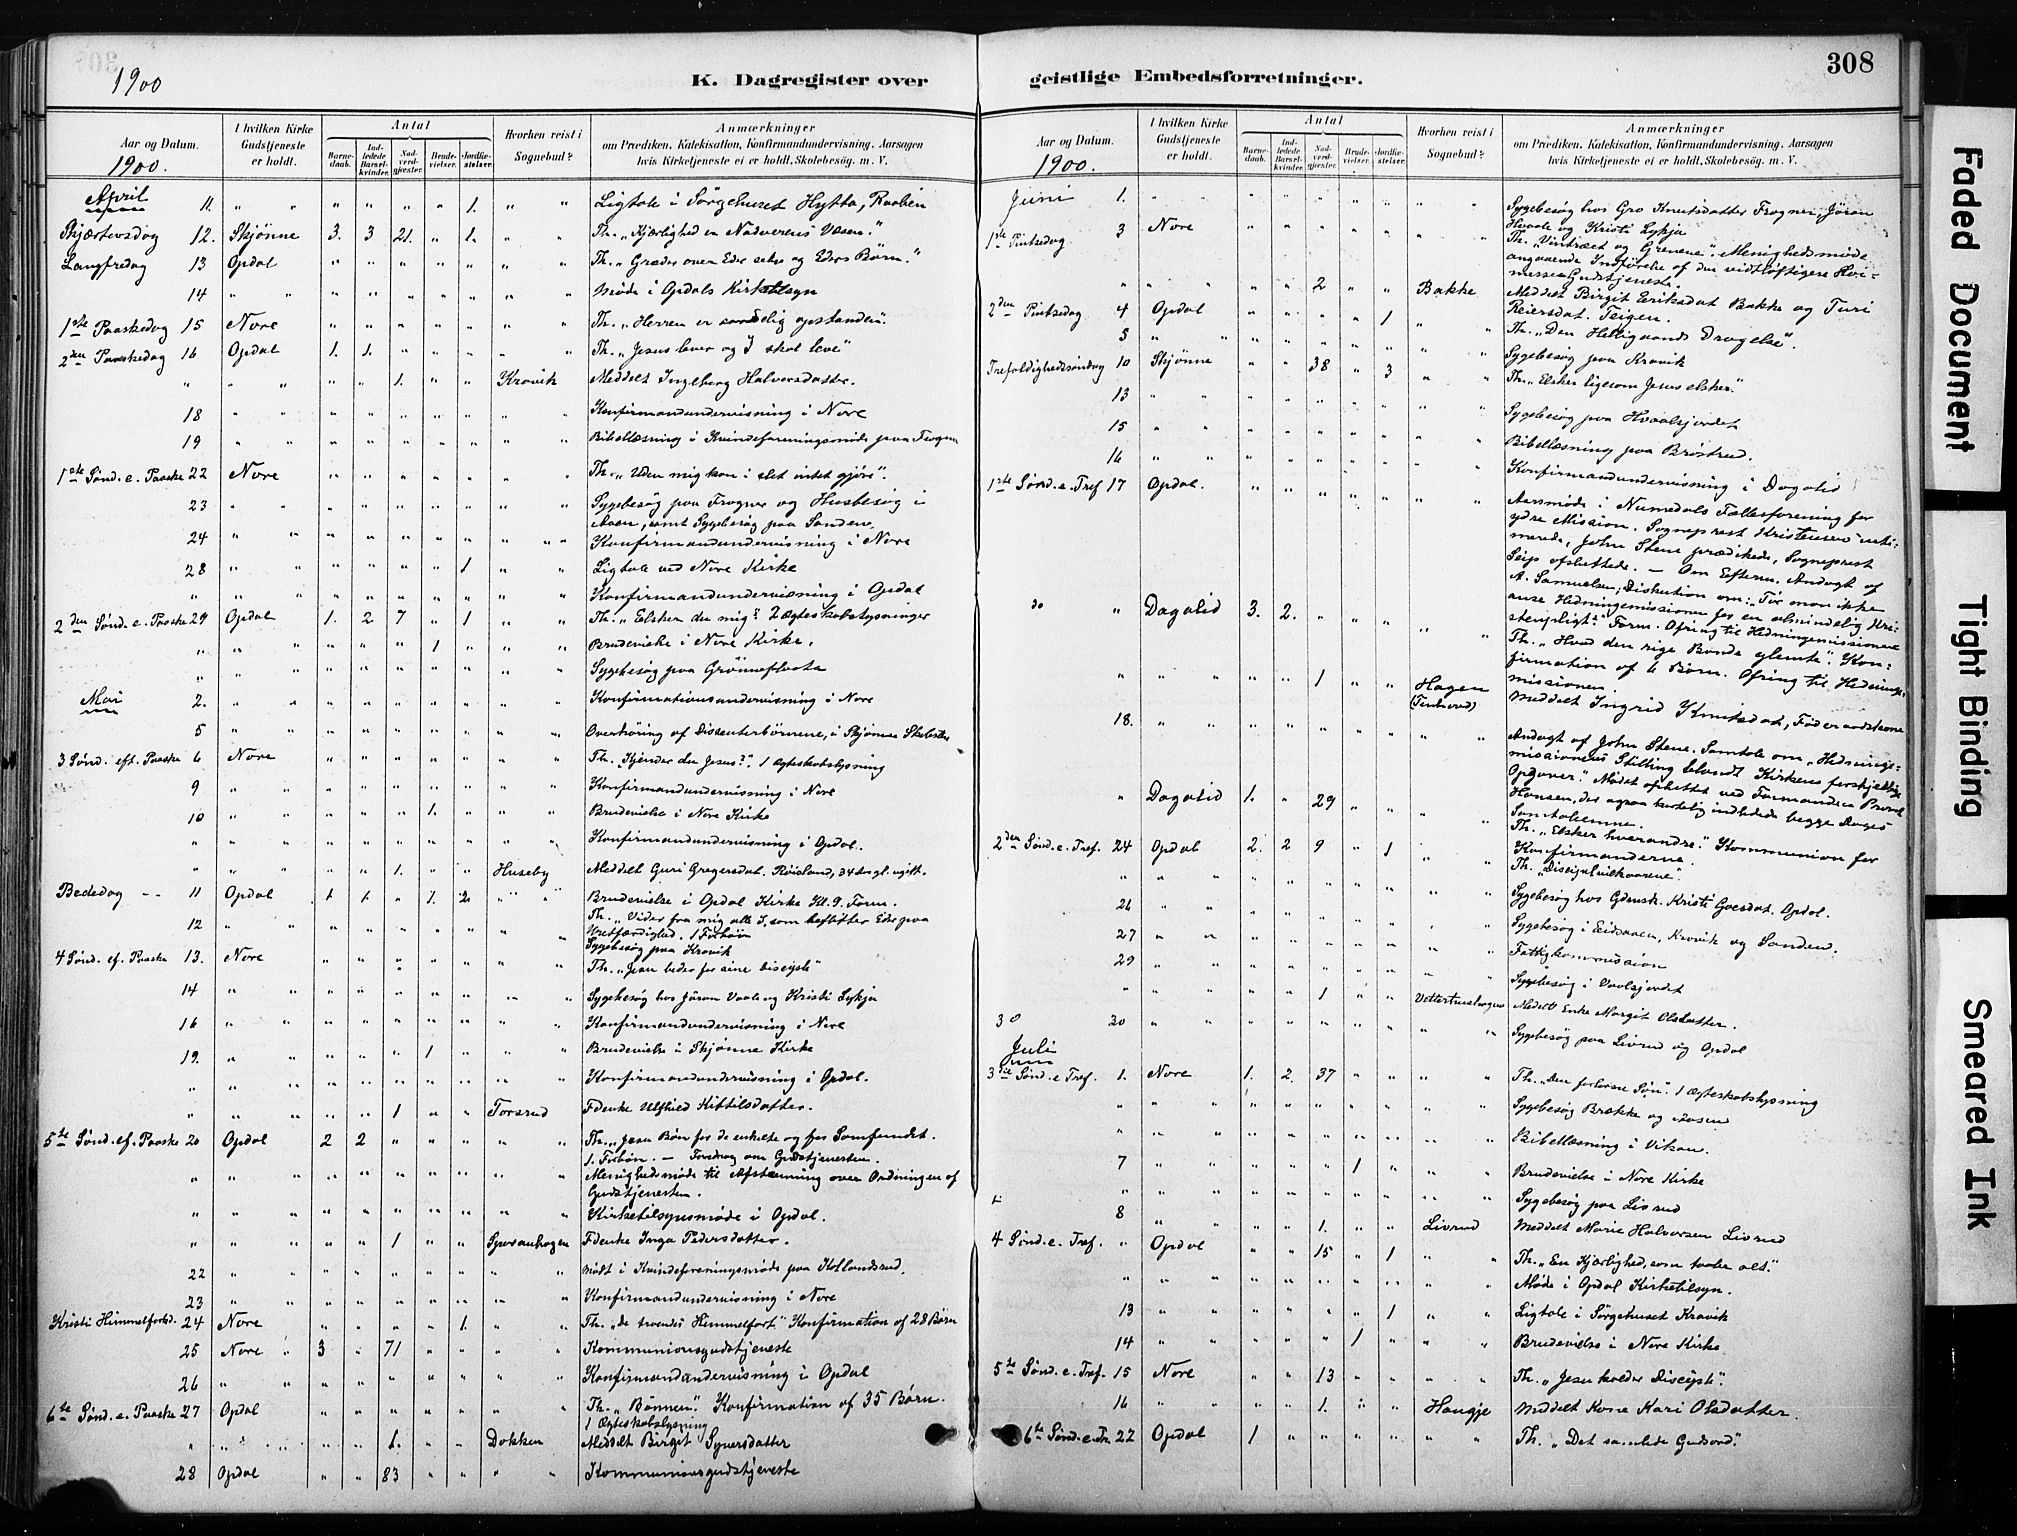 308
1900
K. Dagregister over
Aar og Datum.
1900.
I hvilken Kirke Gudstjeneste er holdt.
Antal
Barne-daab.
Ind-ledede Barsel-kvinder.
Nad-verd-gjæster.
Brude-vielser.
Jordfæ-stelser.
Hvorhen reist i Sognebud?
Anmærkninger
om Prædiken, Katekisation, Konfirmandundervisning, Aarsagen
hvis Kirketjeneste ei er holdt, Skolebesøg, m. V.
April 11. " " " " " " 1. " " Ligtale i Sørgehuset Hytta, Raaben
Skjærtorsdag 12. Skjønne 3. 3 21. " 1. " " Th. „Kjærlighed en Nadverens Væsen."
Langfredag 13 Opdal " " " " " " " Th. „Græder over Eder selv og Eders Børn."
14 " " " " " " " " " Møde i Opdals Kirketilsyn
1ste Paaskedag 15 Nore " " " " " " " Th. „Herren er sandelig opstanden".
2den Paaskedag 16 Opdal 1. 1. " " " " " Th. „Jesus lever og I skal leve"
" " " " " 1. " " Kravik Meddelt Ingeborg Halvorsdatter.
18 " " " " " " " " " Konfirmandundervisning i Nore
19 " " " " " " " " " Bibellæsning i Kvindeforeningsmøde paa Frogner
1ste Sønd. e. Paaske 22 Nore " " " " " " " Th. „Uden mig kan i slet intet gjøre".
23 " " " " " " " " " Sygebesøg paa Frogner og Husbesøg i
Aasen, samt Sygebesøg paa Sanden.
24 " " " " " " " " " Konfirmandundervisning i Nore
28 " " " " " " 1 " " Ligtale ved Nore Kirke
" " " " " " " " " " Konfirmandundervisning i Opdal
2den Sønd. e. Paaske 29 Opdal 1. 2 7 " 1 " " Th. „Elsker du mig? 2 Ægteskabslysninger
" " " " " " 1 " " " Brudevielse i Nore Kirke.
" " " " " " " " " " Sygebesøg paa Grønneflaata
Mai 2. " " " " " " " " " Konfirmationsundervisning i Nore
5 " " " " " " " " " Overhøring af Dissenterbørnene, i Skjønne
3 Sønd. eft. Paaske 6 Nore " " " " " " " Th. „Kjender du Jesus?". 1 Ægteskabslysning
9 " " " " " " " " " Konfirmandundervisning i Nore
10 " " " " " 1. " " " Brudevielse i Nore Kirke
" " " " " " " " " " Konfirmandundervisning i Opdal.
" " " " " 1. " " Huseby Meddelt Guri Gregersdat. Røisland, 34 Aar gl. ugift.
Bededag -- 11 Opdal 1 1. " 1. 2 " " Brudevielse i Opdal Kirke Kl. 9 Form.
Th. „Viger fra mig alle I, som befatter Eder paa
12 " " " " " " " " " Uretfærdighed. 1 Forbøn
Sygebesøg paa Kravik
4 Sønd. ef. Paaske 13. Nore " " " " " " " Th. „Jesu beder for sine Disciple"
14 " " " " " " " " " Sygebesøg hos Jøran Vaale og Kristi Lykja
16 " " " " " " " " " Konfirmandundervisning i Nore
19. " " " " " 1 " " " Brudevielse i Skjønne Kirke
" " " " " " " " " " Konfirmandundervisning i Opdal.
" " " " " 1 " " Torsrud Fdenke Ulfhild Kittilsdatter.
5te Sønd. ef. Paaske 20 Opdal 2 2 " " " " " Th. „Jesu Bøn for de enkelte og for Samfundet.
1. Forbøn. — Foredrag om Gudstjenesten.
" " " " " " " " " " Menighedsmøde til Afstemning over Ordningen af
Gudstjenesten.
" " " " " " " " " " Kirketilsynsmøde i Opdal.
" " " " " 1 " " Synsranhagen Fdenke Inga Pedersdatter.
22 " " " " " " " " " Mødt i Kvindeforeningsmøde paa Kollandsrud.
23 " " " " " " " " " Konfirmandundervisning i Nore
Kristi Himmelfartsd. 24 Nore " " " " 1. " " Th. „de troendes Himmelfart." Konfirmation af 28 Børn
25 Nore " 3 " 71 " " " " Kommunionsgudstjeneste
26 " " " " " " " " " Konfirmandundervisning i Opdal
6te Sønd. e. Paaske 27 Opdal " " " " " " " Th. „Bønnen". Konfirmation af 35 Børn.
1 Ægteskabslysning
" " " " " 1. " " Dokken Meddelt Birgit Syversdatter
28 Opdal " " 83 " " " " Kommunionsgudstjeneste
geistlige Embedsforretninger.
308
Aar og Datum.
1900.
I hvilken Kirke Gudstjeneste er holdt.
Antal
Barne-daab.
Ind-ledede Barsel-kvinder.
Nad-verd-gjæster.
Brude-vielser.
Jordfæ-stelser.
Hvorhen reist i Sognebud?
Anmærkninger
om Prædiken, Katekisation, Konfirmandundervisning, Aarsagen
hvis Kirketjeneste ei er holdt, Skolebesøg, m. V.
Juni 1. " " " " " " " " " Sygebesøg hos Gro Knutsdatter Frogner, Jøran
Hvaale og Kristi Lykja
1ste Pintsedag 3 Nore " " " " " " " Th. „Vintræet og Grenene". Menighedsmøde
angaaende Indførelse af den vidtløftigere Høi-
messe Gudstjeneste.
" " " " " 2 " " Bakke Meddelt Birgit Eriksdat Bakke og Turi
Reiersdat. Teigen.
2den Pintsedag 4 Opdal " " " " 1 " " Th. „Den Helligaands Dragelse".
5 " " " " " " " " " Sygebesøg paa Kravik
Trefoldighedssøndag 10 Skjønne " " 38 " 3 " " Th. „Elsker ligesom Jesus elsker."
13 " " " " " " " " " Sygebesøg paa Hvaalsjordet
15 " " " " " " " " " Bibellæsning paa Brøstrud.
16 " " " " " " " " " Konfirmandundervisning i Dagalid
1ste Sønd. e. Tref 17 Opdal. " " " " " " " Aarsmøde i Numedals Fællesforening for
ydre Mission. Sogneprest Kristensen inti-
merede, John Stene prædikede, Sogneprest
Seip afsluttede. — Om Efterm. Andagt af
A. Samuelsen, Diskution om: „Tør man ikke
anse Hedningemissionen for en almindelig Kri-
stenpligt?" Form. Ofring til Hedningemissionen
do " Dagalid 3. 2. " " " " " Th. „Hvad den rige Bonde glemte". Kon-
firmation af 6 Børn. Ofring til Hednings-
missionen.
" " " " " 1 " " Hagen Meddelt Ingrid Knutsdat,
18. " " " " " " " " " Andagt af John Stene. Samtale om „Hednings-
missionens Stilling blandt Kirkens forskjellige
Opgaver." Mødet afsluttet ved Formanden
Hansen, der ogsaa indledede begge Dages
Samtaleemne.
" Dagalid 1. " 29 " " " " Th. „Elsker hverandre." Kommunion for
Konfirmanderne.
2den Sønd. e. Tref. 24 Opdal 2. 2 9 " 1 " " Th. „Discipelvilkaarene".
" " " " " " " " " " Sygebesøg hos Kristi Opdal.
26 " " " " " " " " " Sygebesøg i Eidsaaen, Kravik og Sanden.
27 " " " " " " " " " Fattigkommission
29 " " " " " " " " " Sygebesøg i Vaalsjordet
" " " " " 1 " " Meddelt Enke Margit Olsdatter.
30 " " " " " " " " " Sygebesøg paa Livrud og Opdal
Juli
3die Sønd. e. Tref. 1. Nore 1. 2. 37 " " " " Th. „Den forlorne Søn". 1 Ægteskabslysning
" " " " " " " " " " Sygebesøg Brække og Aasen
" " " " " " " " " " Bibellæsning i Vikan.
7 " " " " " 1 " " " Brudevielse i Nore Kirke
" " " " " " " " " " Sygebesøg paa Livrud
8 " " " " 1. " " Livrud Meddelt Marie Halvorsen Livrud
4 Sønd. e. Tref. " Opdal " " 15 " 1 " " Th. „En Kjærlighed, som taaler alt."
" " " " " " " " " " Møde i Opdal Kirketilsyn.
13 " " " " " " 1 " " Ligtale i Sørgehuset Kravik
14 " " " " " 1 " " " Brudevielse i Nore Kirke
5te Sønd. e. Tref. 15 Nore " " 13 " " " " Th. „Jesu kalder Disciple".
16 " " " " 1. " " Haugje Meddelt Kone Kari Olsdatter.
6te Sønd. e. Tr. 22 Opdal 1 " " " " " " Th. „Det samlede Gudsord".
Faded Document
Tight Binding
Smeared Ink